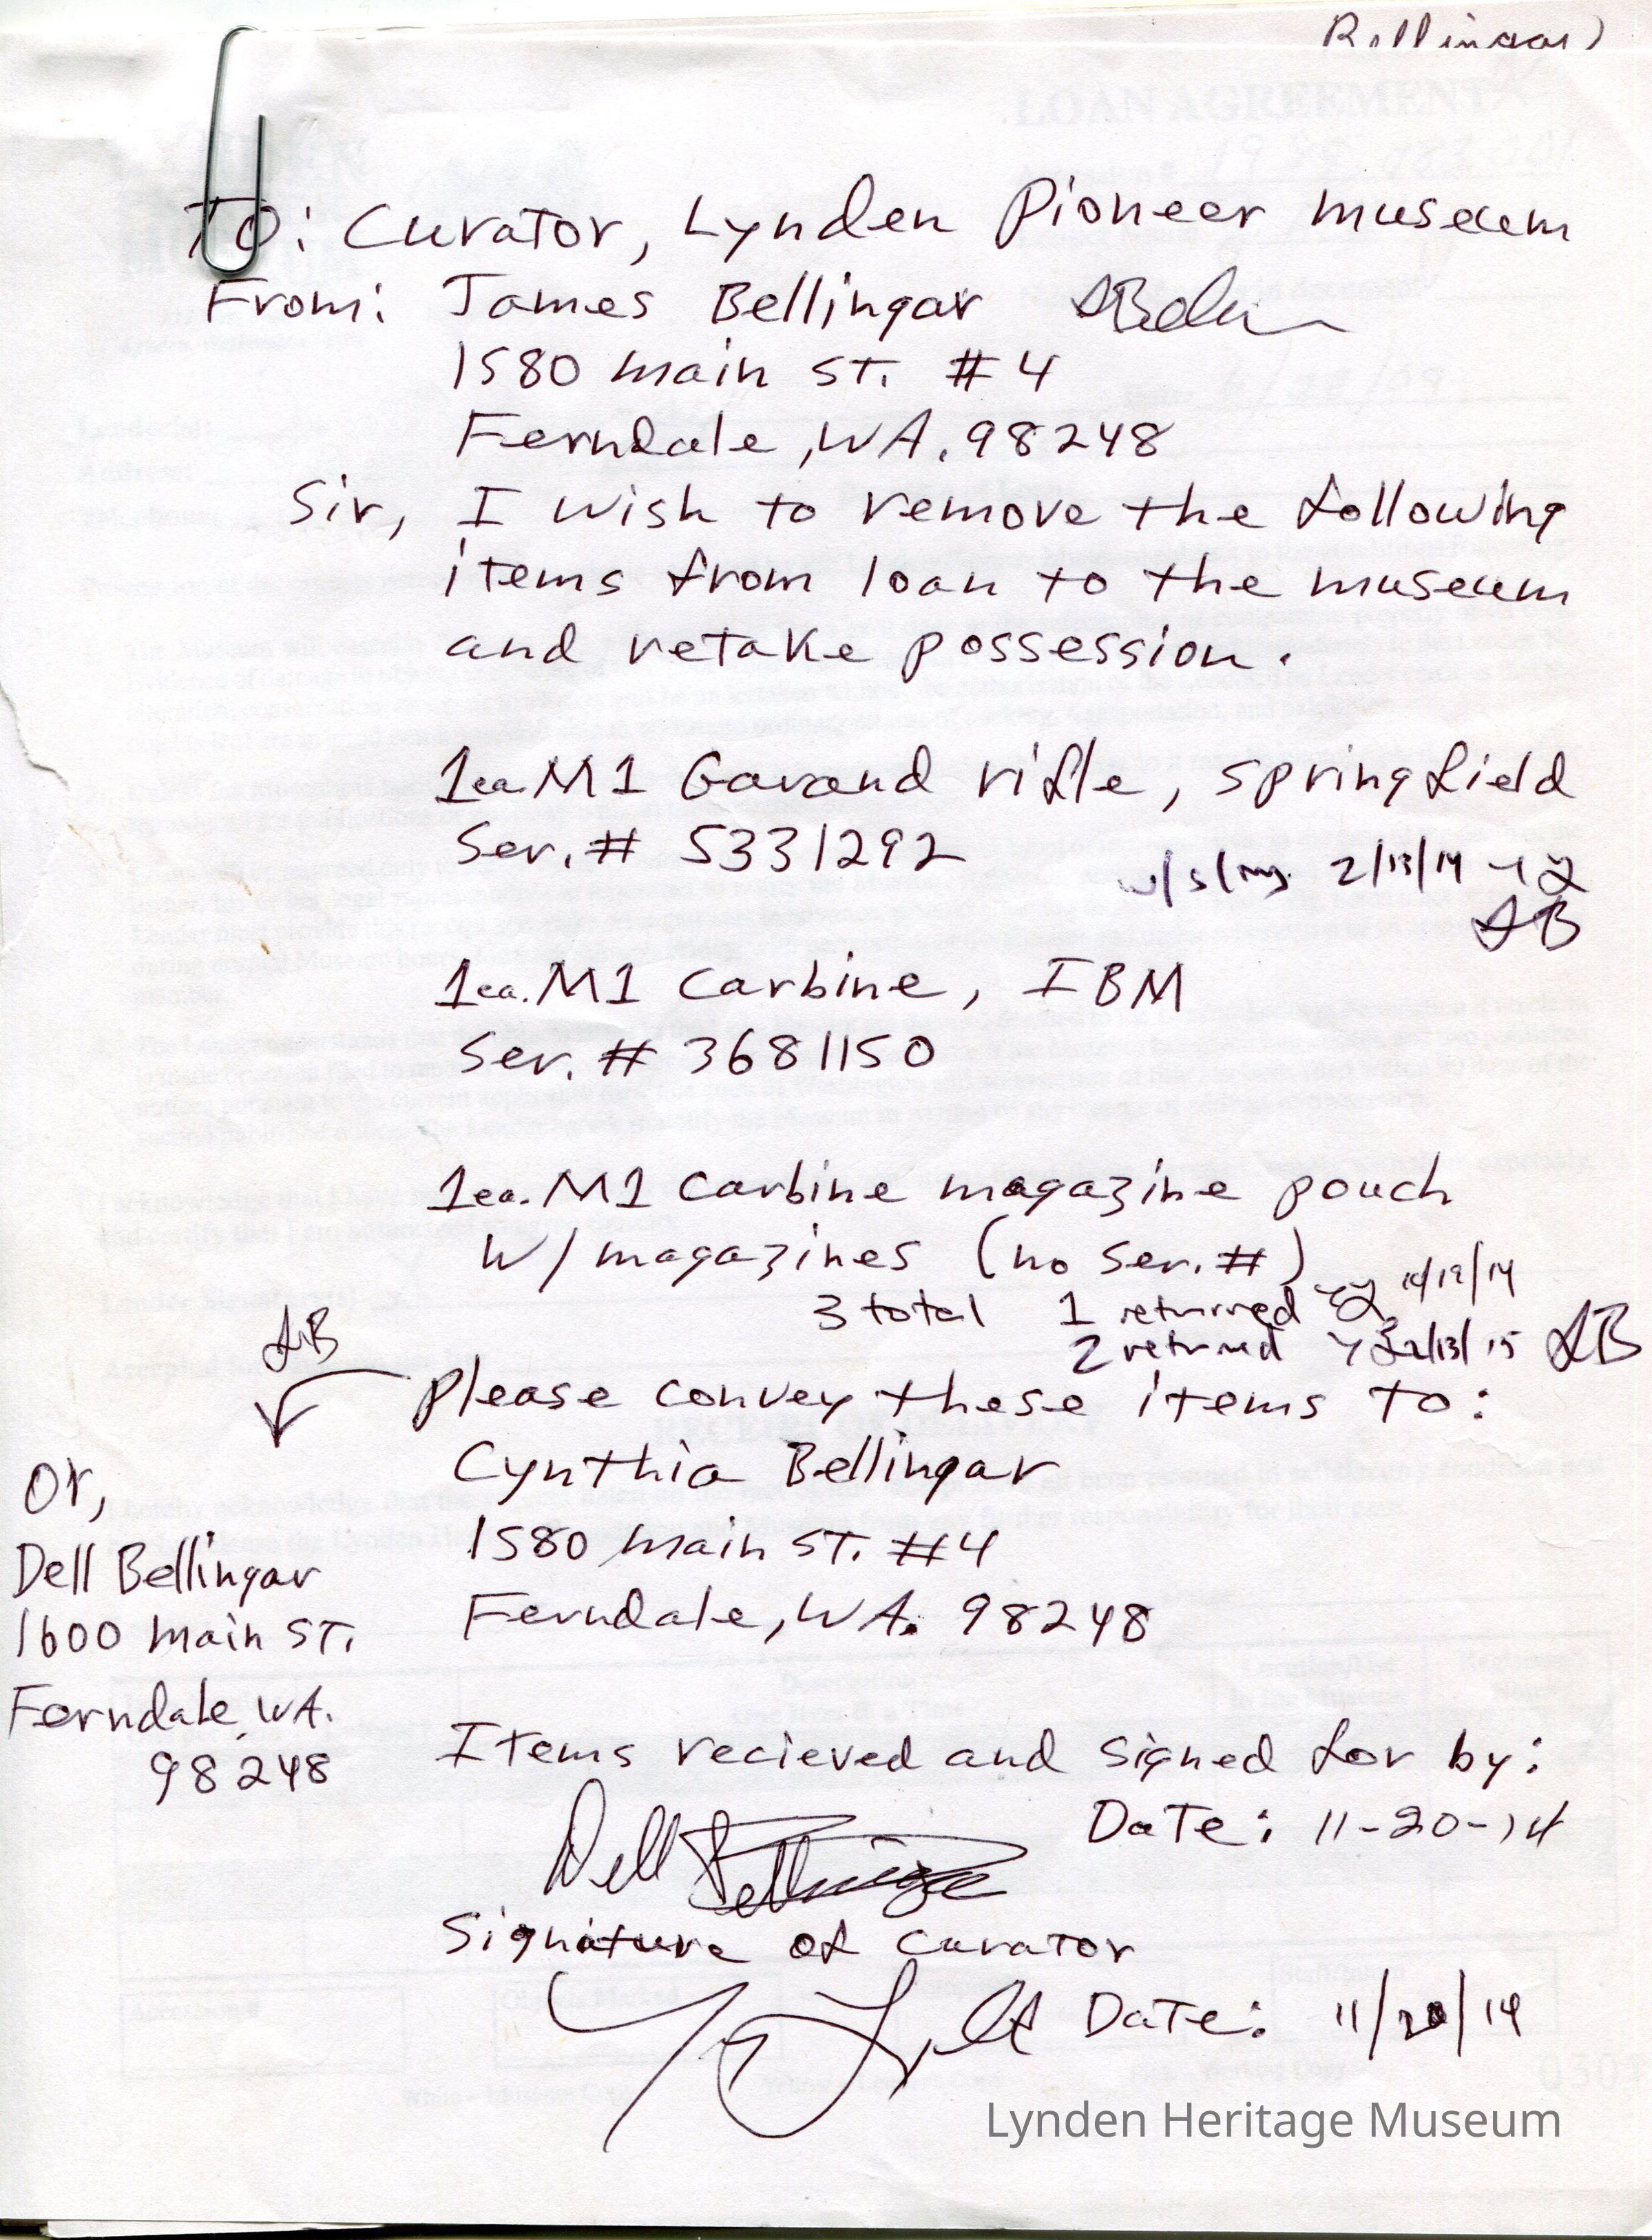 Bellingar
LOAN AGREEMENT
To: Curator, Lynden Pioneer museum
From: James Bellingar
1580 main ST. #4
Ferndale, WA. 98248
Sir, I wish to remove the following
items from loan to the museum
and retake possession.
1ea. M1 Garand rifle, springfield
Ser. # 5331292
w/ sling 2/13/14
AB
1ea. M1 Carbine, IBM
Ser. # 3681150
1ea. M1 Carbine magazine pouch
W/ magazines (no ser. #)
3 total 1 returned
2 returned 2/13/15 AB
AB
please convey these items to:
Cynthia Bellingar
1580 main ST. #4
Ferndale, WA. 98248
Or,
Dell Bellingar
1600 main ST.
Ferndale, WA.
98248
Items recieved and signed for by:
Dell Bellingar Date: 11-20-14
Signature of curator
Date: 11/20/14
Lynden Heritage Museum